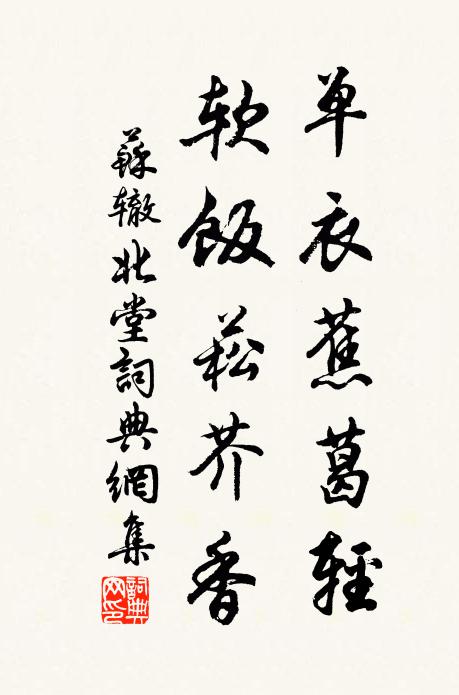 单衣蕉葛輕
软飯菘芥香
蘇辙北堂詞典網集
詞典网印